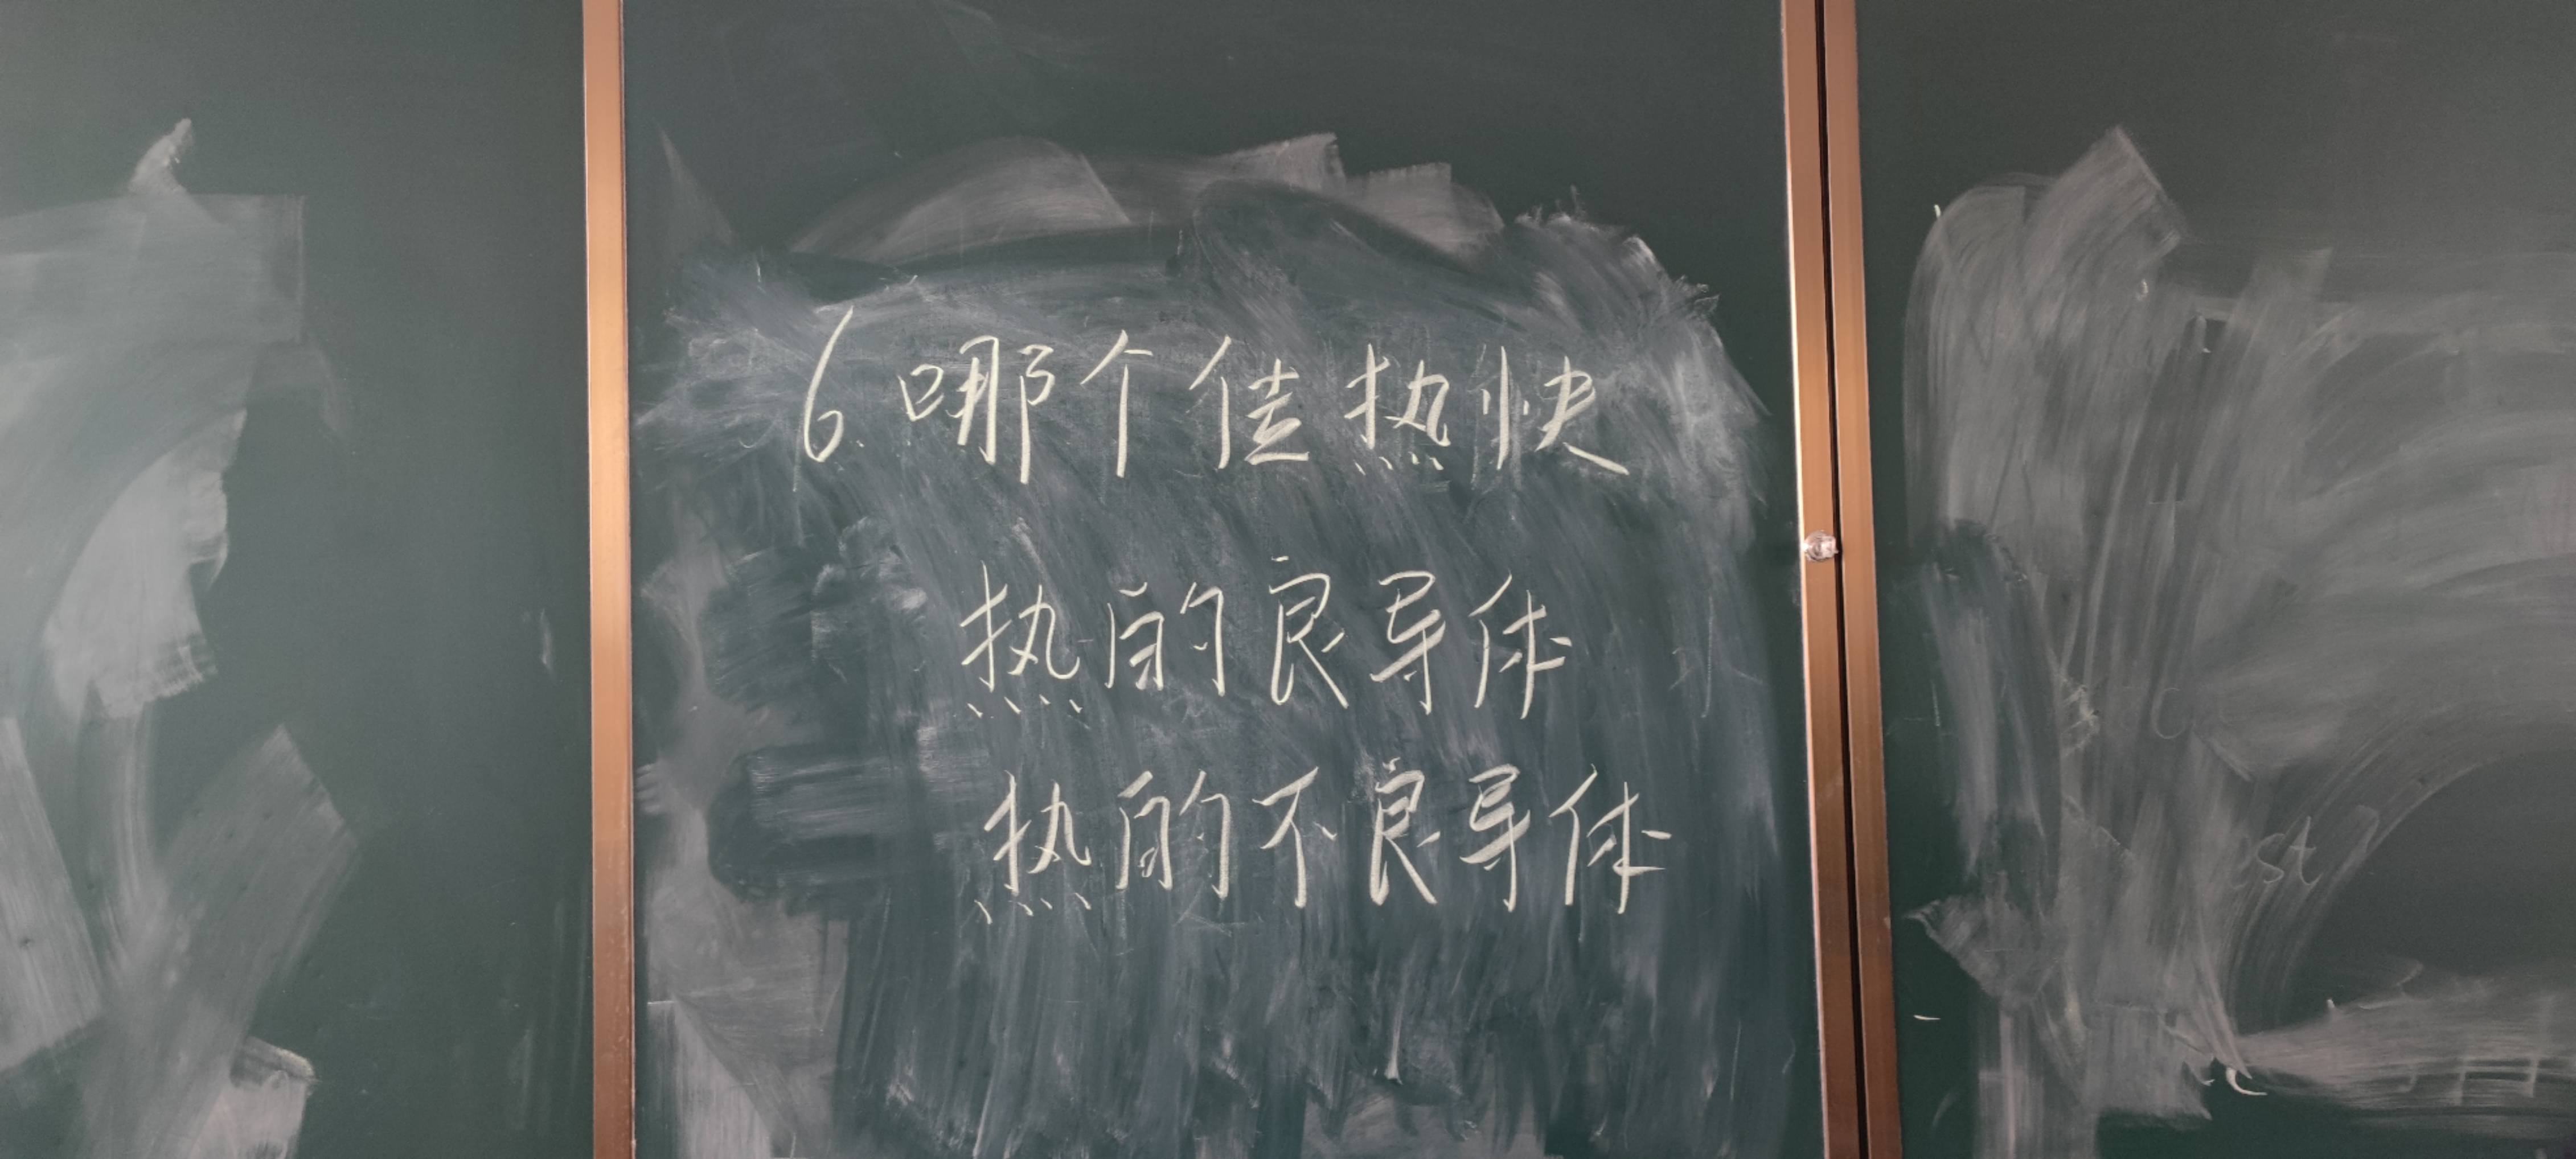 6. 哪个传热快
热的良导体
热的不良导体